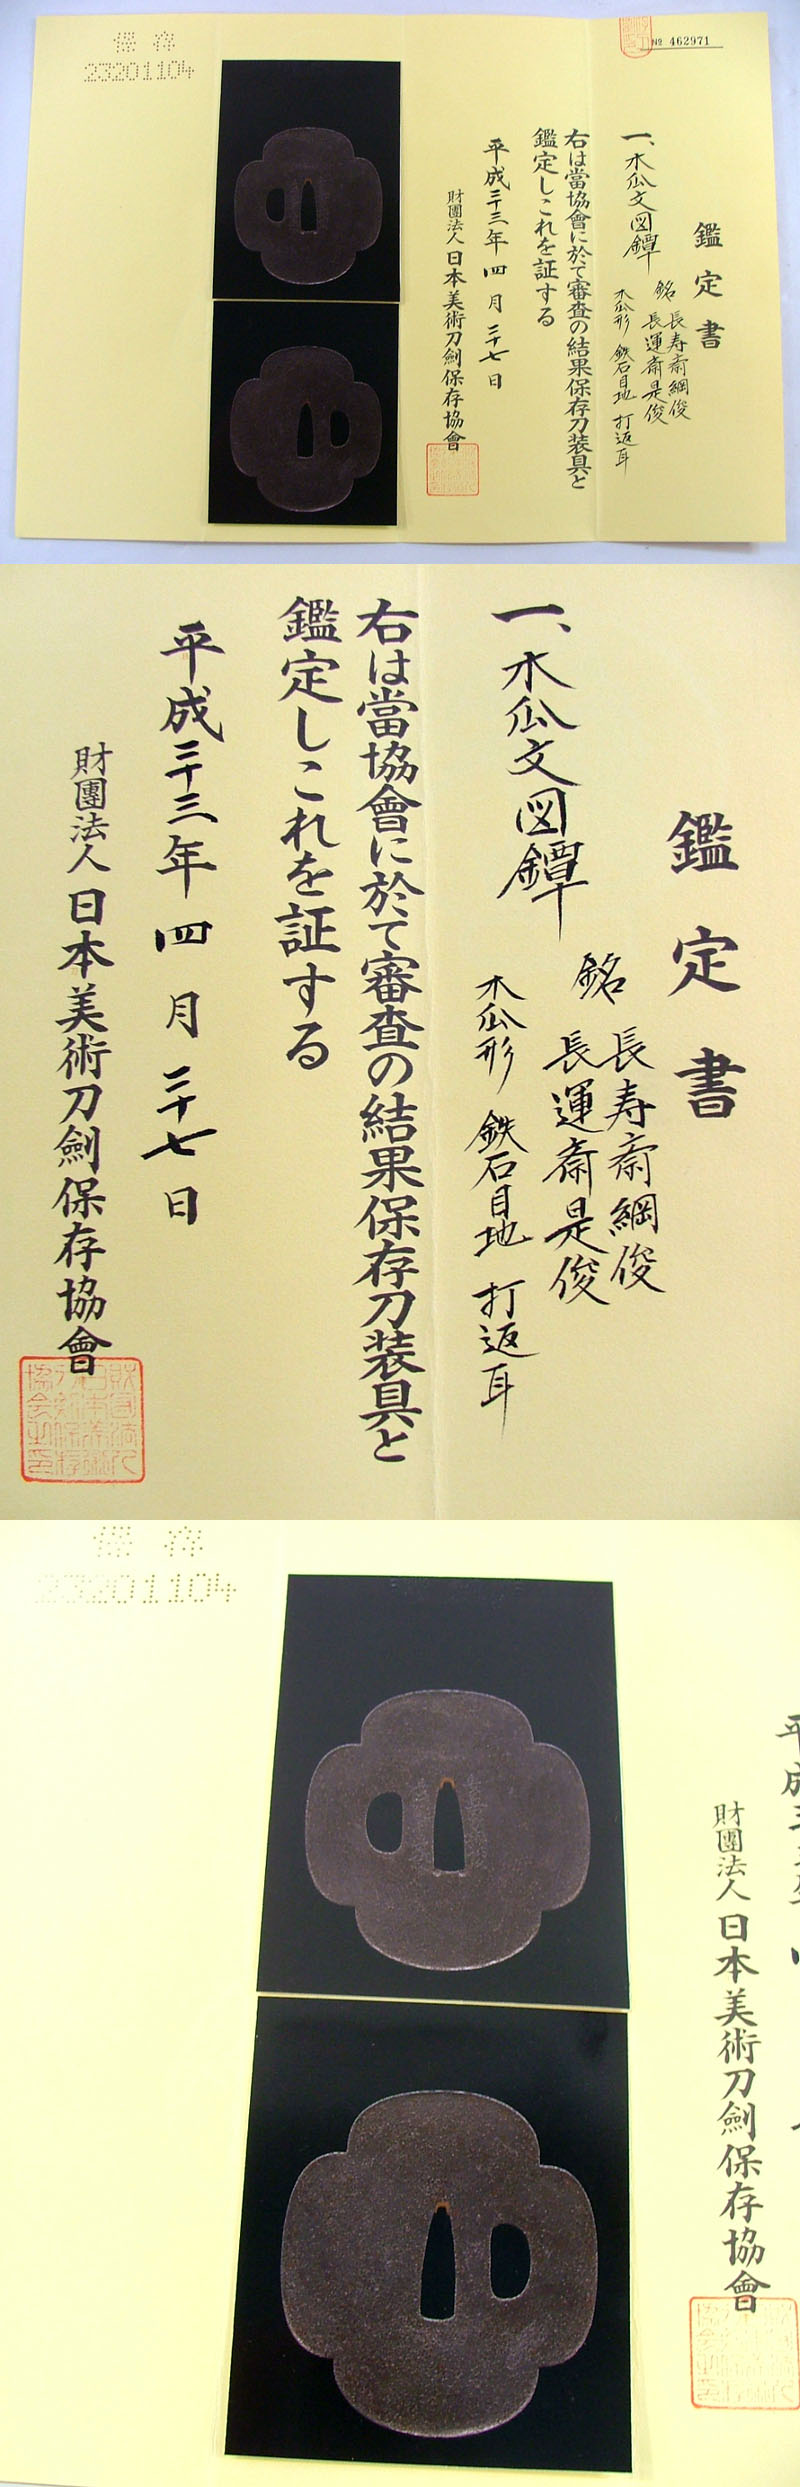 保存
23201104
№ 462971
鑑定書
一、木瓜文図鐔
銘 長寿斎綱俊
長運斎是俊
木瓜形 鉄石目地 打返耳
右は當協會に於て審査の結果保存刀装具と
鑑定しこれを証する
平成二十三年四月二十七日
財團法人日本美術刀劍保存協會
鑑定書
一、木瓜文図鐔
銘 長寿斎綱俊
長運斎是俊
木瓜形 鉄石目地 打返耳
右は當協會に於て審査の結果保存刀装具と
鑑定しこれを証する
平成二十三年四月二十七日
財團法人日本美術刀劍保存協會
保存
23201104
平成
財團法人日本美術刀劍保存協會